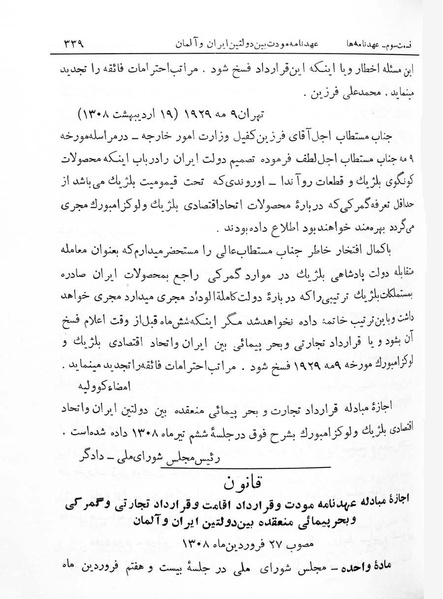 قسمت سوم ـ عهدنامه‌ها عهدنامه مودت بین دولتین ایران و آلمان ۳۳۹
این مسئله اخطار و یا اینکه این قرارداد فسخ شود . مراتب احترامات فائقه را تجدید
مینماید . محمدعلی فرزین .
تهران ۹ مه ۱۹۲۹ (۱۹ اردیبهشت ۱۳۰۸)
جناب مستطاب اجل آقای فرزین کفیل وزارت امور خارجه ـ در مراسله مورخه
۹ مه جناب مستطاب اجل لطف فرموده تصمیم دولت ایران را در باب اینکه محصولات
کونگوی بلژیك و قطعات رو آندا ـ اوروندی که تحت قیمومیت بلژیك می باشد از
حداقل تعرفه گمرکی که در بارهٔ محصولات اتحاد اقتصادی بلژیك و لوکزامبورك مجری
می گردد بهره‌مند خواهند بود اطلاع داده بودند .
با کمال افتخار خاطر جناب مستطاب عالی را مستحضر میدارم که بعنوان معامله
متقابله دولت پادشاهی بلژیك در موارد گمرکی راجع بمحصولات ایران صادره
بمستملکات بلژیك ترتیبی را که در بارهٔ دولت کاملة الوداد مجری میدارد مجری خواهد
داشت و باین ترتیب خاتمه داده نخواهد شد مگر اینکه شش ماه قبل از وقت اعلام فسخ
آن بشود و یا قرارداد تجارتی و بحر پیمائی بین ایران و اتحاد اقتصادی بلژیك و
لوکزامبورك مورخه ۹ مه ۱۹۲۹ فسخ شود . مراتب احترامات فائقه را تجدید مینماید .
امضاء کوولیه
اجازهٔ مبادله قرارداد تجارت و بحر پیمائی منعقده بین دولتین ایران و اتحاد
اقتصادی بلژیك و لوکزامبورك بشرح فوق در جلسهٔ ششم تیر ماه ۱۳۰۸ داده شده است .
رئیس مجلس شورای ملی ـ دادگر
قانون
اجازهٔ مبادله عهدنامه مودت و قرارداد اقامت و قرارداد تجارتی و گمرکی
و بحر پیمائی منعقده بین دولتین ایران و آلمان
مصوب ۲۷ فروردین ماه ۱۳۰۸
مادهٔ واحده ـ مجلس شورای ملی در جلسهٔ بیست و هفتم فروردین ماه